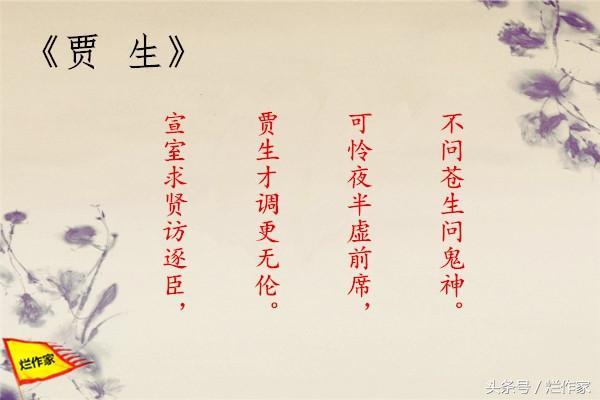 《贾 生》
宣室求贤访逐臣，
贾生才调更无伦。
可怜夜半虚前席，
不问苍生问鬼神。
烂作家
头条号 / 烂作家